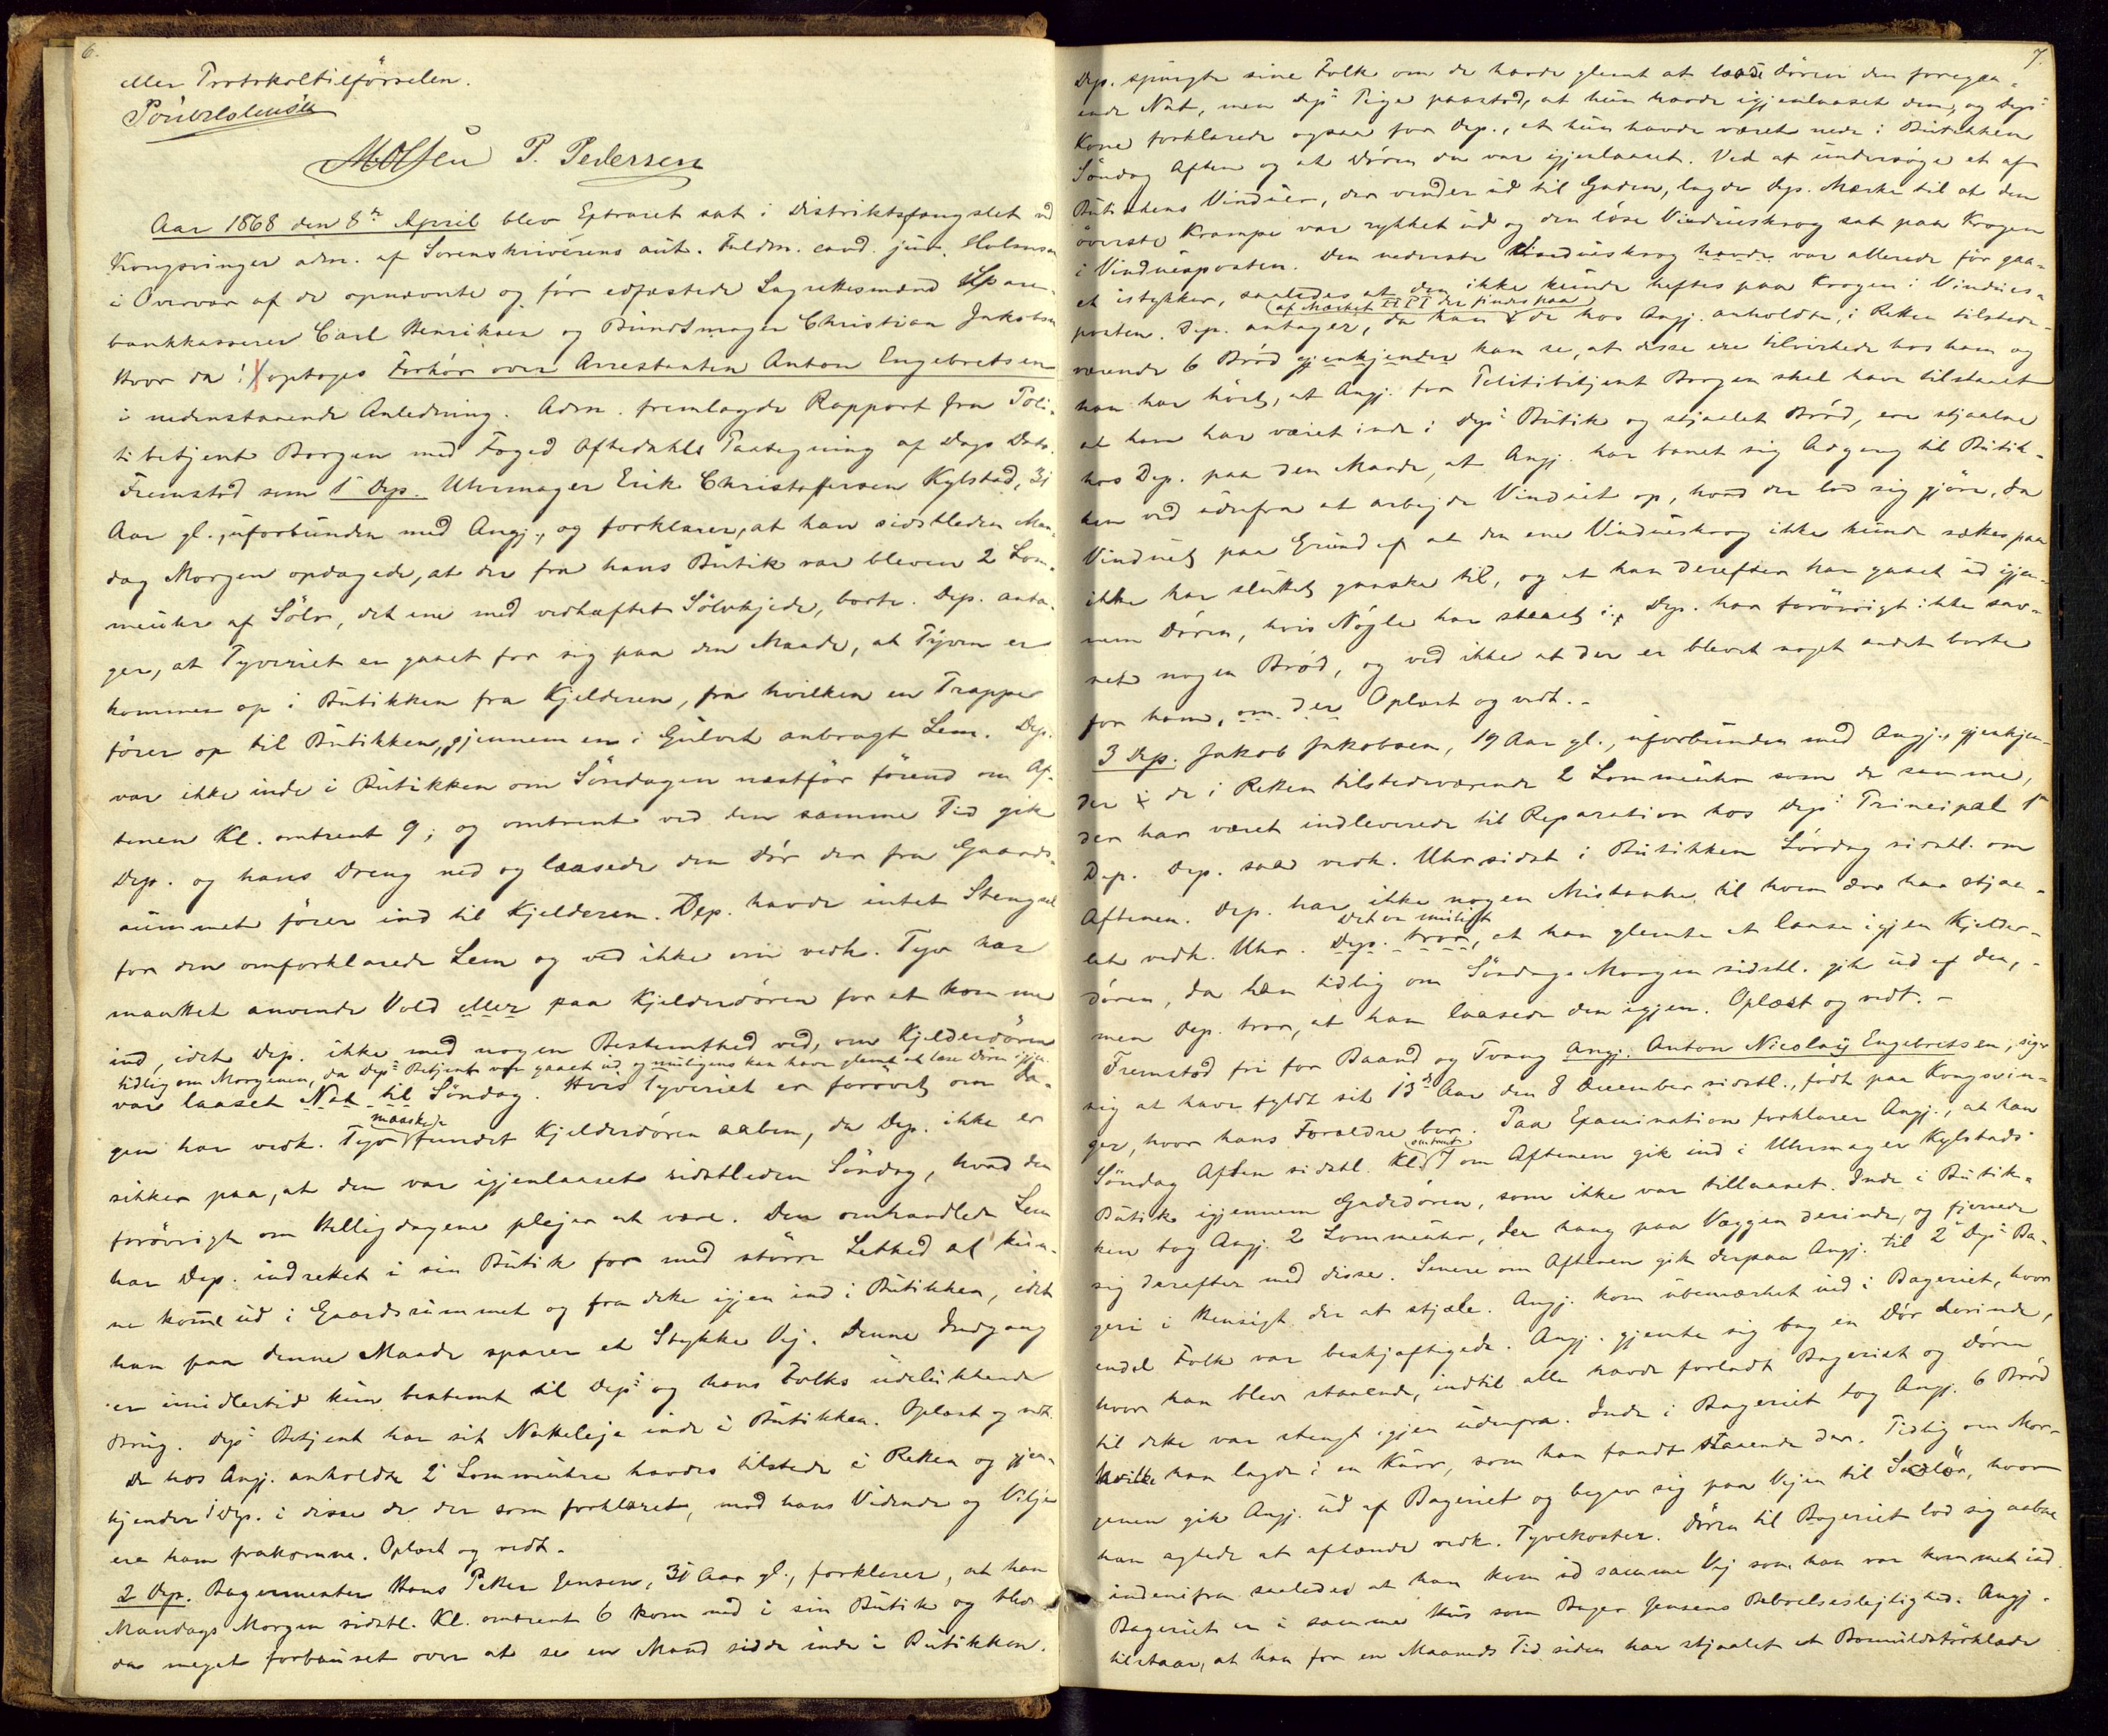 6.
eller Protokoltilförselen.
M Olsen P. Pedersen
Aar 1868 den 8de April blev Extraret sat i Distriktsfængslet ved
Kongsvinger adm. af Sorenskriverens aut. Fuldm. cand. jur. Holmsen
i Overvær af de opnævnte og før edfæstede Lagrettesmænd Spare-
bankkasserer Carl Henriksen og Bundtmager Christian Jakobsen
Hvor da: optoges Forhör over Arrestanten Anton Engebretsen
i nedenstaaende Anledning. Adm. fremlagde Rapport fra Poli-
tibetjent Borgen med Foged Aftedahls Paategning af Dags Dato.
Fremstod som 1ste Dep. Uhrmager Erik Christoffersen Kylstad, 31
Aar gl., uforbunden med Angj., og forklarer, at han sidstleden Man-
dag Morgen opdagede, at der fra hans Butik var bleven 2 Lom-
meuhre af Sölv, det ene med vedhæftet Sölvkjede, borte. Dep. anta-
ger, at Tyveriet er gaaet for sig paa den Maade, at Tyven er
kommen op i Butikken fra Kjelderen, fra hvilken en Trappe
förer op til Butikken, gjennem en i Gulvet anbragt Lem. Dep.
var ikke inde i Butikken om Söndagen næstför förend om Af-
tenen Kl. omtrent 9, og omtrent ved den samme Tid gik
Dep. og hans Dreng ned og laasede den Dör der fra Gaards-
rummet förer ind til Kjelderen. Dep. havde intet Stengsel
for den omforklarede Lem og ved ikke om vedk. Tyv har
maattet anvende Vold eller paa Kjelderdören for at komme
ind, idet Dep. ikke med nogen Bestemthed ved, om Kjelderdören
tidlig om Morgenen, da Deps Betjent var gaaet ud og muligens kan have glemt at læse Dören igjen
var laaset Nat til Söndag. Hvis Tyveriet er forövet om Da-
gen har vedk. Tyv maaskee fundet Kjelderdören aaben, da Dep. ikke er
sikker paa, at den var igjenlaaset sidstleden Söndag, hvad den
forövrigt om Helligdagene plejer at være. Den omhandlede Lem
har Dep. indrettet i sin Butik for med större Lethed at kun-
ne komme ud i Gaardsrummet og fra dette igjen ind i Butikken, idet
han paa denne Maade sparer et Stykke Vej. Denne Indgang
er imidlertid kun bestemt til Deps og hans Folks udelukkende
Brug. Deps Betjent har sit Natteleje inde i Butikken. Oplæst og vedt.
De hos Angj. anholdte 2 Lommeuhre havdes tilstede i Retten og gjen-
kjender 1 Dep. i disse de der som forklaret, mod hans Vidende og Vilje
ere ham frakomne. Oplæst og vedt.
2 Dep. Bagermester Hans Petter Jensen, 31 Aar gl., forklarer, at han
Mandags Morgen sidstl. Kl. omtrent 6 kom ned i sin Butik og blev
da meget forbauset over at se en Mand sidde inde i Butikken.
7.
Dep. spurgte sine Folk om de havde glemt at laase Dören den foregaa-
ende Nat, men Deps Pige paastod, at hun havde igjenlaaset den, og Deps
Kone forklarede ogsaa for Dep., at hun havde været nede i Butikken
Söndag Aften og at Dören da var igjenlaaset. Ved at undersöge et af
Butikkens Vinduer, der vender ud til Gaden, lagde Dep. Mærke til at den
överste Krampe var rykket ud og den löse Vindueskrog sat paa Krogen
i Vinduesposten. Den nederste Vindueskrog havde var allerede för gaa-
et istykker, saaledes at den ikke kunde heftes paa Krogen i Vindues-
posten. Dep. antager, da han af Mærket HPI der findes paa de hos Angj. anholdte, i Retten tilstede-
værende 6 Bröd gjenkjender kan se, at disse ere tilvirkede hos ham og
han har hört, at Angj. for Politibetjent Borgen skal have tilstaaet
at han har været inde i Deps Butik og stjaalet Bröd, ere stjaalne
hos Dep. paa den Maade, at Angj. har banet sig Adgang til Butik-
ken ved udenfra at arbejde Vinduet op, hvad der lod sig gjöre, da
Vinduet paa Grund af at den ene Vindueskrog ikke kunde sættes paa
ikke har sluttet ganske til, og at han derefter har gaaet ud igjen-
nem Dören, hvis Nögle har staaet i. Dep. har forövrigt ikke sav-
net nogen Bröd, og ved ikke at der er blevet noget andet borte
for ham, om der Oplæst og vedt.-
3 Dep. Jakob Jakobsen, 19 Aar gl., uforbunden med Angj. gjenkjen-
der i de i Retten tilstedeværende 2 Lommeuhre som de samme,
der har været indleverede til Reparation hos Deps Principal 1ste
Dep. Dep. saa vedk. Uhre sidst i Butikken Lördag sidstl. om
Aftenen. Dep. har ikke nogen Mistanke til hvem der har stjaa-
let vedk. Uhr. Dep. tror, Det er muligt at han glemte at laase igjen Kjelder-
dören, da han tidlig om Söndags Morgen sidstl. gik ud af den,-
men Dep. tror, at han laasede den igjen. Oplæst og vedt.-
Fremstod fri for Baand og Tvang Angj. Anton Nicolay Engebretsen, siger
sig at have fyldt sit 13de Aar den 8 December sidstl., födt paa Kongsvin-
ger, hvor hans Foræeldre bor. Paa Examination forklarer Angj., at han
Söndag Aften sidstl. Kl. omtrent 7 om Aftenen gik ind i Uhrmager Kylstads
Butik igjennem Gadedören, som ikke var tillaaset. Inde i Butik-
ken tog Angj. 2 Lommeuhre, der hang paa Væggen derinde, og fjernede
sig derefter med disse. Senere om Aftenen gik derpaa Angj. til 2 Deps Ba-
geri i Hensigt der at stjæle. Angj. kom ubemærket ind i Bageriet, hvor
endel Folk var beskjæftigede. Angj. gjemte sig bag en Dör derinde,
hvor han blev staaende, indtil alle havde forladt Bageriet og Dören
til dette var stengt igjen udenfra. Inde i Bageriet tog Angj. 6 Bröd
hvilke han lagde i en Kurv, som han fandt staaende der. Tidlig om Mor-
genen gik Angj. ud af Bageriet og begav sig paa Vejen til Solör, hvor
han agtede at afhænde vedk. Tyvekoster. Dören til Bageriet lod sig aabne
indenifra saaledes at han kom ud samme Vej som han var kommet ind.
Bageriet er i samme Hus som Bager Jensens Beboelseslejlighed. Angj.
tilstaar, at han for en Maaneds Tid siden har stjaalet et Bomuldstörklæde